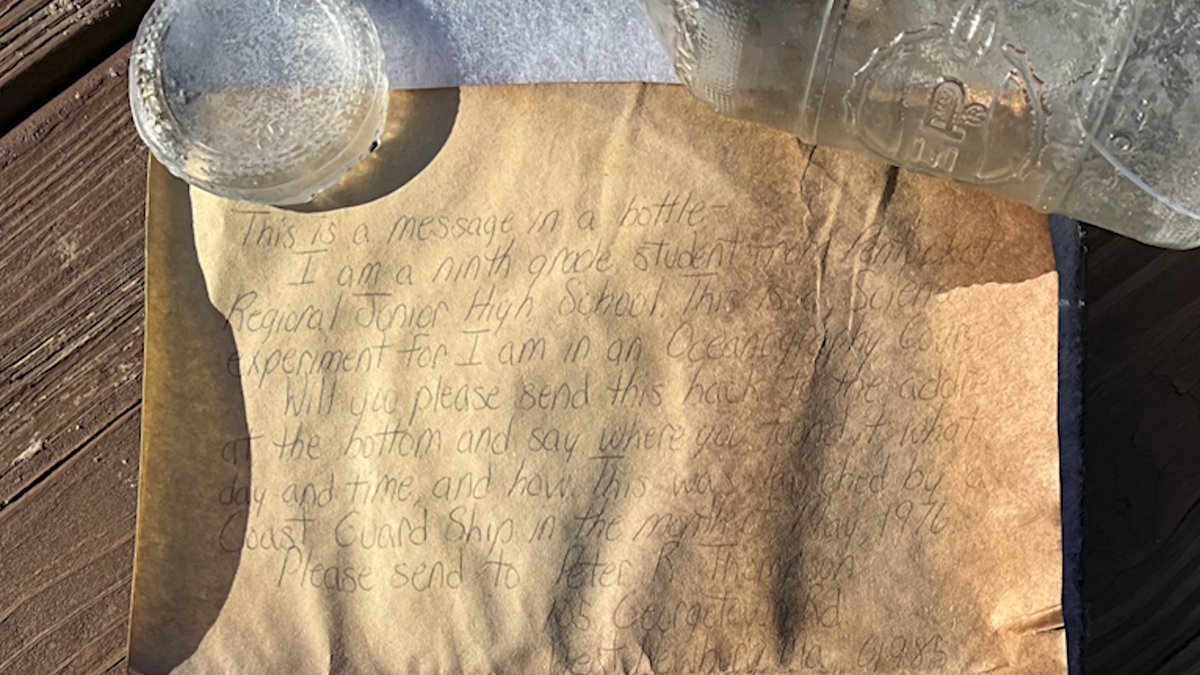 This is a message in a bottle-
I am a ninth grade student from Pentucket
Regional Junior High School. This is a Scien
experiment for I am in an Oceanography Cours
Will you please send this back to the addre
at the bottom and say where you found it what
day and time, and how. This was launched by a
Coast Guard Ship in the month of May, 1976
Please send to Peter R Thompson
Georgetown Rd
West Newbury Ma 01985